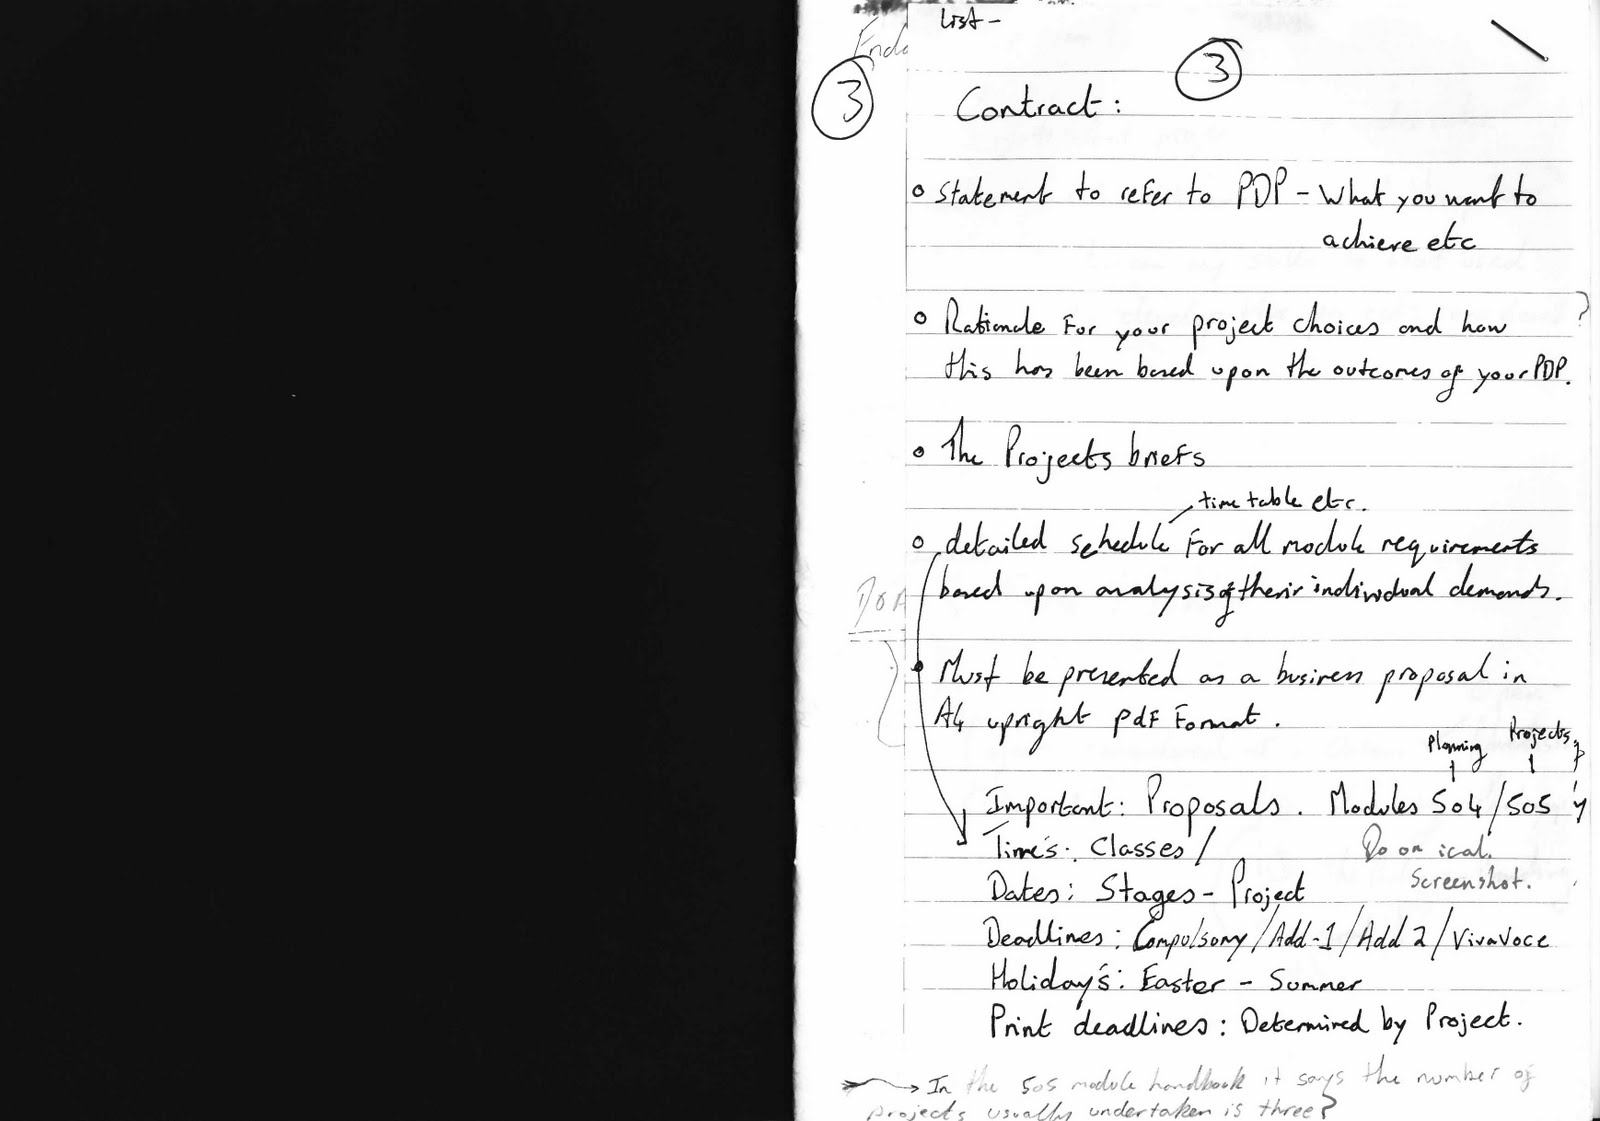 List -
3
3
Contract:
o statement to refer to PDP - What you want to
achieve etc
o Rationale For your project choices and how ?
this has been based upon the outcomes of your PDP.
o The Projects briefs
time table etc.
o detailed schedule For all module requirements
based upon analysis of their individual demands.
• Must be presented as a business proposal in
A4 upright pdf Format.
Planning Projects
Important: Proposals. Modules 504/505
Time's: Classes/ Do on ical.
Dates: Stages - Project Screenshot.
Deadlines: Compulsory/Add-1/Add 2/VivaVoce
Holiday's: Easter - Summer
Print deadlines: Determined by Project.
→ In the 505 module handbook it says the number of
projects usually undertaken is three?